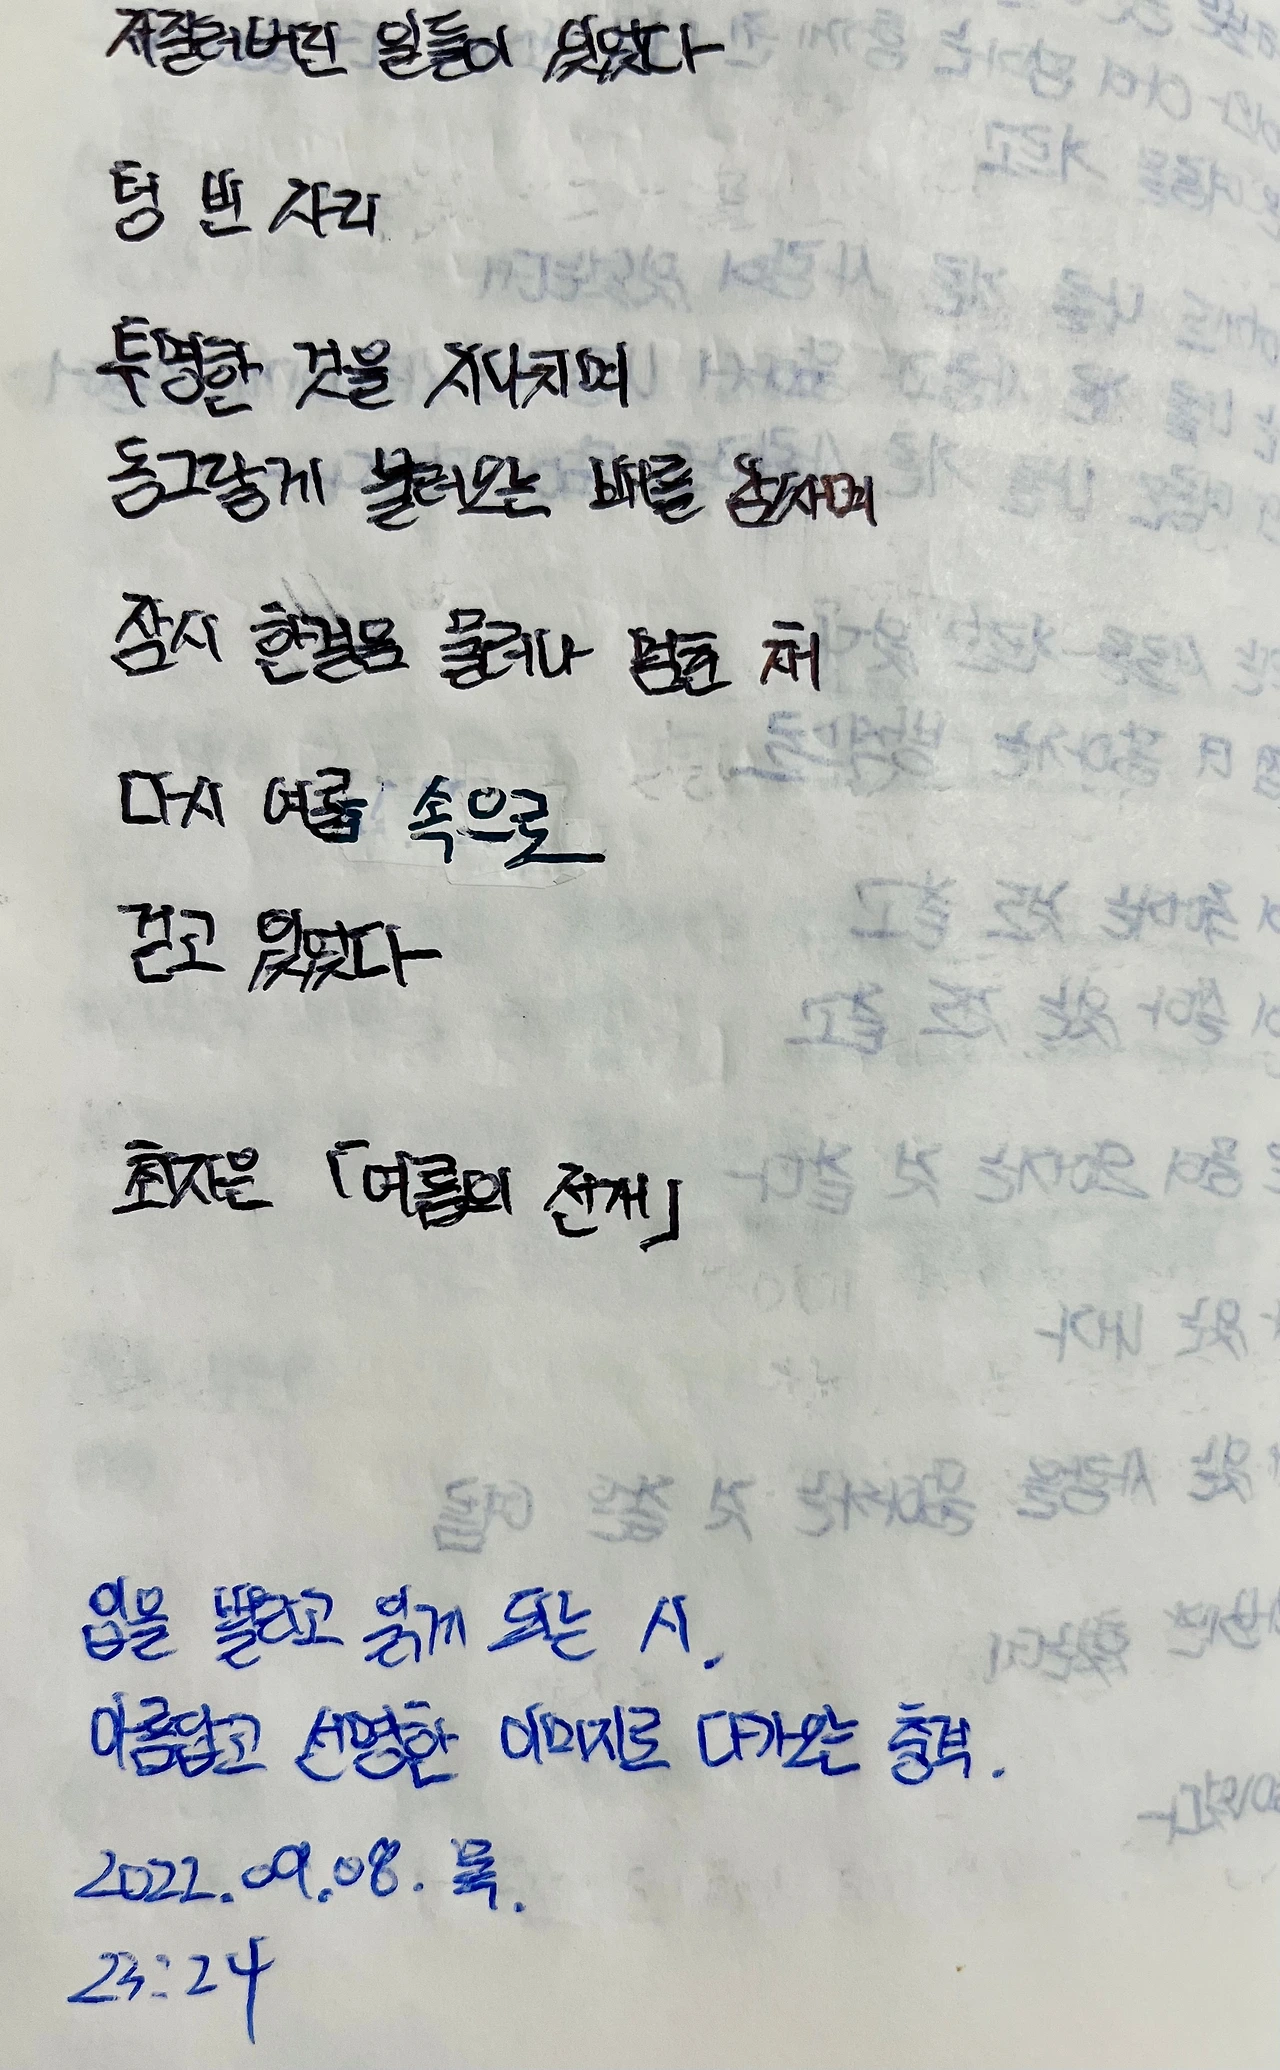 저질러버린 일들이 있었다
텅 빈 자리
투명한 것을 지나치며
동그랗게 불러오는 배를 감싸며
잠시 한걸음 물러나 멈춘 채
다시 여름 속으로
걷고 있었다
최지은 「여름의 전개」
입을 벌리고 읽게 되는 시.
아름답고 선명한 이미지로 다가오는 충격.
2022.09.08. 목.
23:24